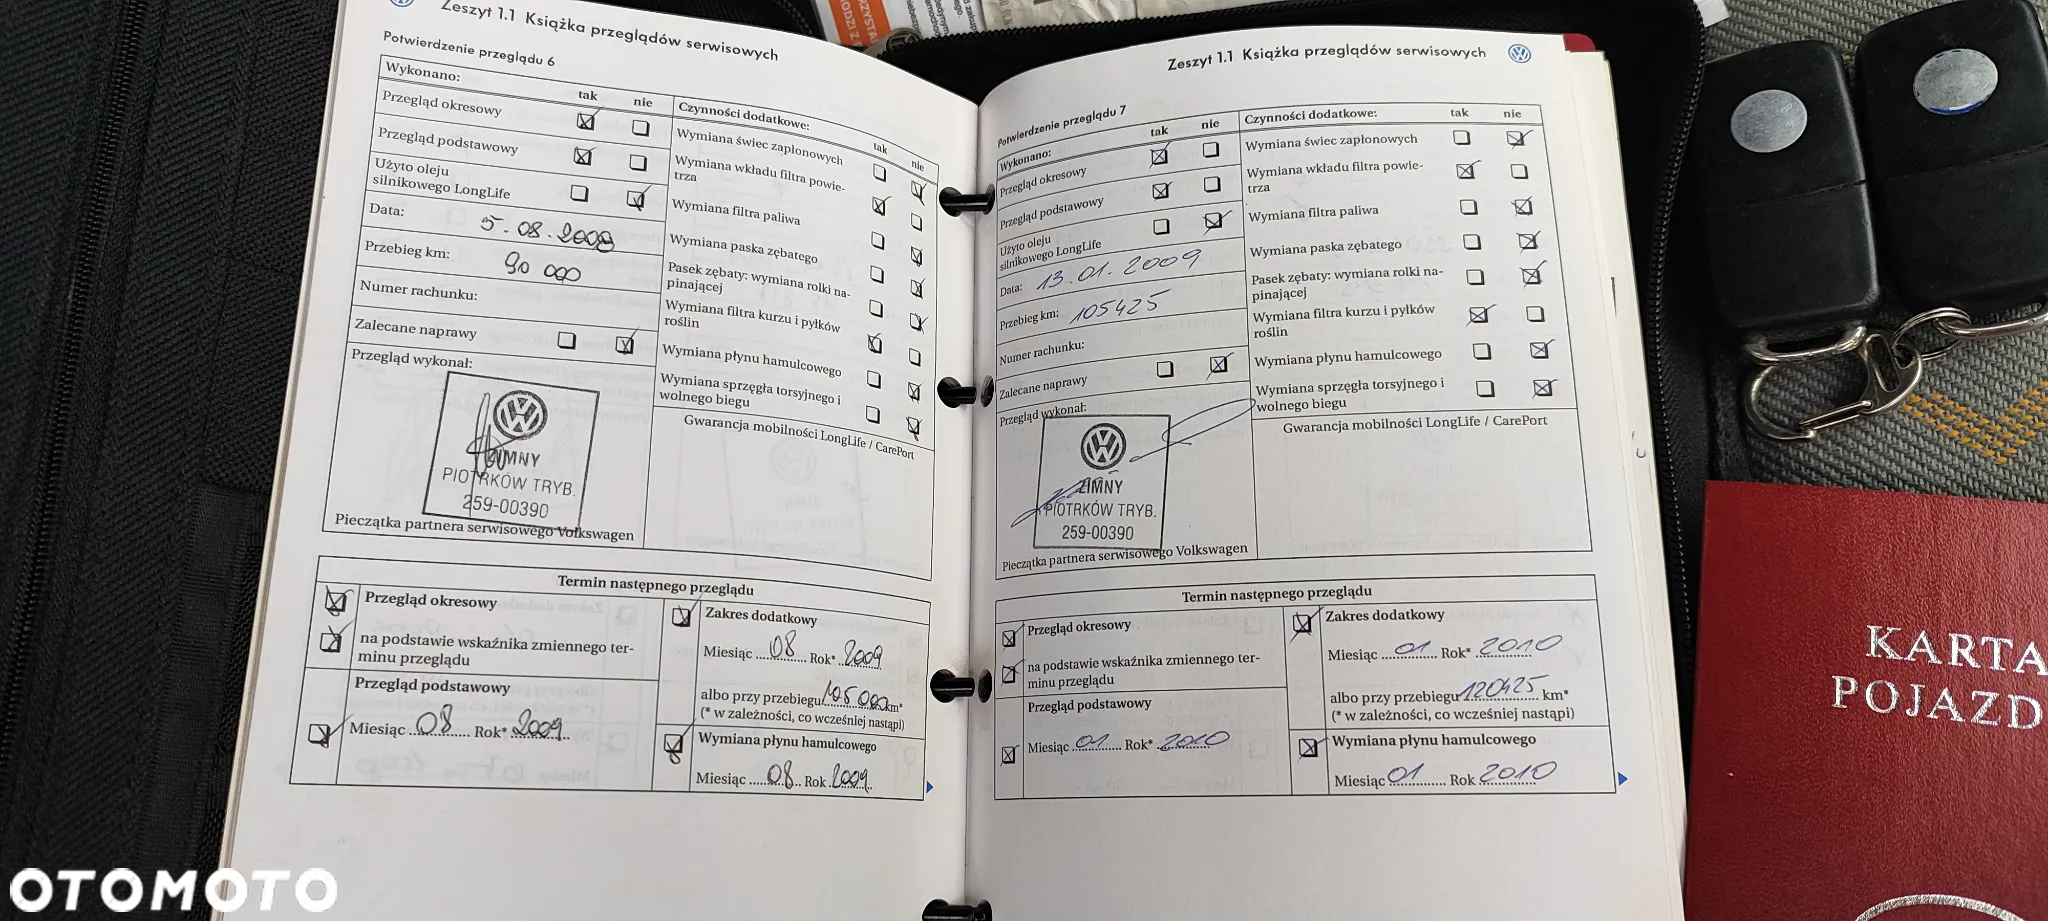 Zeszyt 1.1 Książka przeglądów serwisowych
Potwierdzenie przeglądu 6
Wykonano:
tak nie
Przegląd okresowy
Przegląd podstawowy
Użyto oleju
silnikowego LongLife
Data: 5.08.2008
Przebieg km: 90 000
Numer rachunku:
Zalecane naprawy
Przegląd wykonał:
ZIMNY
PIOTRKÓW TRYB.
259-00390
Pieczątka partnera serwisowego Volkswagen
Czynności dodatkowe:
tak nie
Wymiana świec zapłonowych
Wymiana wkładu filtra powie-
trza
Wymiana filtra paliwa
Wymiana paska zębatego
Pasek zębaty: wymiana rolki na-
pinającej
Wymiana filtra kurzu i pyłków
roślin
Wymiana płynu hamulcowego
Wymiana sprzęgła torsyjnego i
wolnego biegu
Gwarancja mobilności LongLife / CarePort
Termin następnego przeglądu
Przegląd okresowy
na podstawie wskaźnika zmiennego ter-
minu przeglądu
Przegląd podstawowy
Miesiąc 08 Rok* 2009
Zakres dodatkowy
Miesiąc 08 Rok* 2009
albo przy przebiegu 105 000 km*
(* w zależności, co wcześniej nastąpi)
Wymiana płynu hamulcowego
Miesiąc 08 Rok 2009
Zeszyt 1.1 Książka przeglądów serwisowych
Potwierdzenie przeglądu 7
Wykonano:
tak nie
Przegląd okresowy
Przegląd podstawowy
Użyto oleju
silnikowego LongLife
Data: 13.01.2009
Przebieg km: 105425
Numer rachunku:
Zalecane naprawy
Przegląd wykonał:
ZIMNY
PIOTRKÓW TRYB.
259-00390
Pieczątka partnera serwisowego Volkswagen
Czynności dodatkowe:
tak nie
Wymiana świec zapłonowych
Wymiana wkładu filtra powie-
trza
Wymiana filtra paliwa
Wymiana paska zębatego
Pasek zębaty: wymiana rolki na-
pinającej
Wymiana filtra kurzu i pyłków
roślin
Wymiana płynu hamulcowego
Wymiana sprzęgła torsyjnego i
wolnego biegu
Gwarancja mobilności LongLife / CarePort
Termin następnego przeglądu
Przegląd okresowy
na podstawie wskaźnika zmiennego ter-
minu przeglądu
Przegląd podstawowy
Miesiąc 01 Rok* 2010
Zakres dodatkowy
Miesiąc 01 Rok* 2010
albo przy przebiegu 120425 km*
(* w zależności, co wcześniej nastąpi)
Wymiana płynu hamulcowego
Miesiąc 01 Rok 2010
KARTA
POJAZD
OTOMOTO